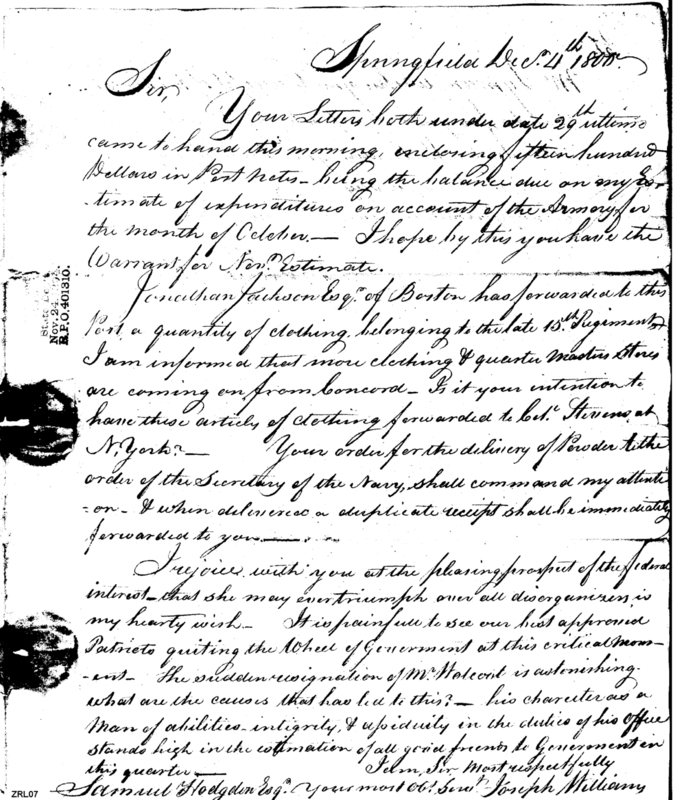 Springfield Decr. 4th 1800
Sir,
Your Letters both under date 29th ultimo
came to hand this morning, enclosing fifteen hundred
Dollars in Post Notes - being the balance due on my Es-
-timate of expenditures on account of the Armory for
the month of October. — I hope by this you have the
Warrant for Novr. Estimate.
Jonathan Jackson Esqr. of Boston has forwarded to this
Post a quantity of clothing, belonging to the late 15th Regiment &
I am informed that more clothing & quarter Masters Stores
are coming on from Concord - Is it your intention to
have these articles of clothing forwarded to Colo. Stevens, at
N. York? — Your order for the delivery of Powder to the
order of the Secretary of the Navy, shall command my attenti
-on - & when delivered a duplicate receipt shall be immediately
forwarded to you —
I rejoice with you at the pleasing prospect of the federal
interest - that she may ever triumph over all disorganizers, is
my hearty wish - It is painfull to see our best approved
Patriots quiting the Wheel of Goverment at this critical mom-
-ent - The sudden resignation of Mr. Wolcott is astonishing.
what are the causes that has led to this? — his charecter as a
Man of abilities - integrity, & assiduity in the duties of his office
stands high in the estimation of all good friends to Goverment in
this quarter — I am, Sir most respectfully
Samuel Hodgdon Esqr. Your most obt. Servt. Joseph Williams
Nov. 24
R.P.O. 401310.
ZRL07